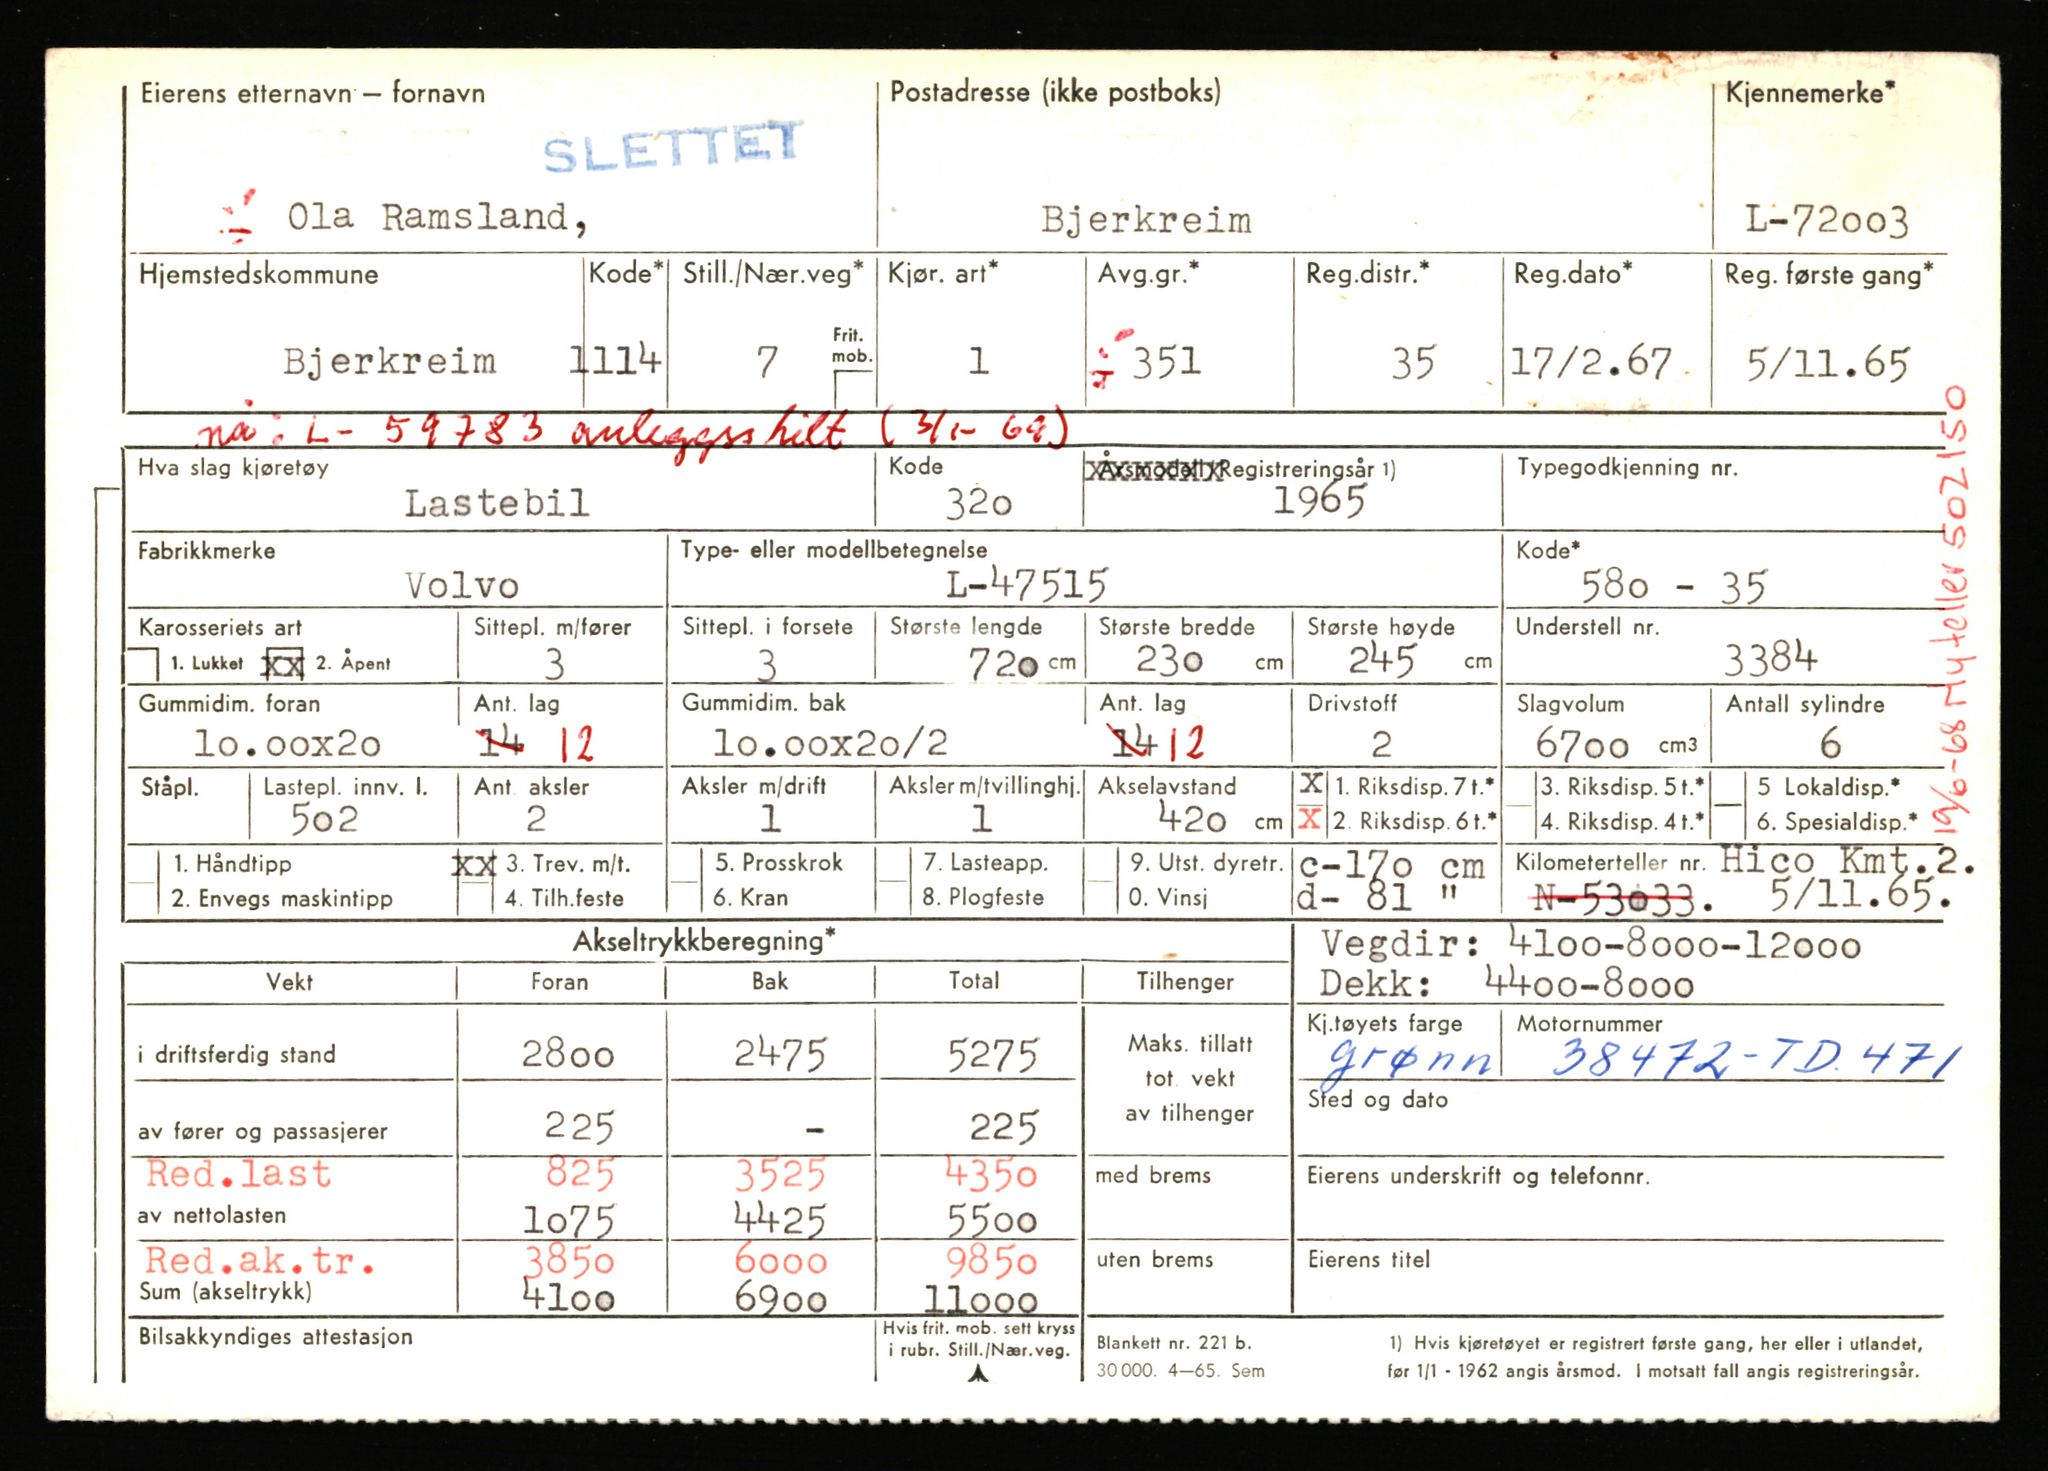 Eierens etternavn – fornavn Postadresse (ikke postboks) Kjennemerke*
SLETTET
Ola Ramsland, Bjerkreim L-72003
Hjemstedskommune Kode* Still./Nær.veg* Kjør. art* Avg.gr.* Reg.distr.* Reg.dato* Reg. første gang*
Frit. mob.
Bjerkreim 1114 7 1 351 35 17/2.67 5/11.65
nå: L- 59783 anleggsskilt (3/1- 69)
Hva slag kjøretøy Kode Årsmodell/Registreringsår 1) Typegodkjenning nr.
Lastebil 320 1965
Fabrikkmerke Type- eller modellbetegnelse Kode*
Volvo L-47515 580 - 35
Karosseriets art Sittepl. m/fører Sittepl. i forsete Største lengde Største bredde Største høyde Understell nr.
1. Lukket XX 2. Åpent 3 3 720 cm 230 cm 245 cm 3384
Gummidim. foran Ant. lag Gummidim. bak Ant. lag Drivstoff Slagvolum Antall sylindre
10.00x20 14 12 10.00x20/2 14 12 2 6700 cm3 6
Ståpl. Lastepl. innv. l. Ant. aksler Aksler m/drift Aksler m/tvillinghj. Akselavstand X 1. Riksdisp. 7 t.* 3. Riksdisp. 5 t.* 5 Lokaldisp.*
502 2 1 1 420 cm X 2. Riksdisp. 6 t.* 4. Riksdisp. 4 t.* 6. Spesialdisp.*
1. Håndtipp XX 3. Trev. m/t. 5. Prosskrok 7. Lasteapp. 9. Utst. dyretr. c-170 cm Kilometerteller nr. Hico Kmt.2.
2. Envegs maskintipp 4. Tilh.feste 6. Kran 8. Plogfeste 0. Vinsj d- 81 " N-53033. 5/11.65.
19/6-68 Ny teller 502150
Akseltrykkberegning* Vegdir: 4100-8000-12000
Vekt Foran Bak Total Tilhenger Dekk: 4400-8000
Kj.tøyets farge Motornummer
i driftsferdig stand 2800 2475 5275 Maks. tillatt tot. vekt av tilhenger grønn 38472-TD.471
Sted og dato
av fører og passasjerer 225 - 225
Red.last 825 3525 4350 med brems Eierens underskrift og telefonnr.
av nettolasten 1075 4425 5500
Red.ak.tr. 3850 6000 9850 uten brems Eierens titel
Sum (akseltrykk) 4100 6900 11000
Bilsakkyndiges attestasjon Hvis frit. mob. sett kryss i rubr. Still./Nær.veg. Blankett nr. 221 b. 1) Hvis kjøretøyet er registrert første gang, her eller i utlandet,
30 000. 4–65. Sem før 1/1 - 1962 angis årsmod. I motsatt fall angis registreringsår.